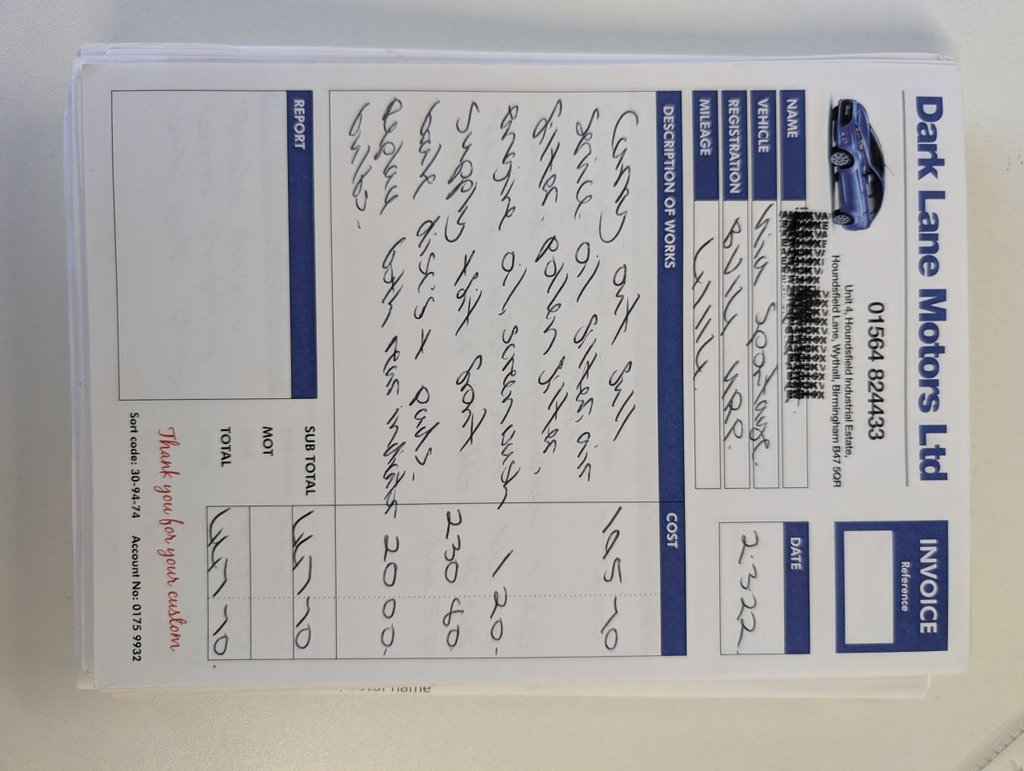 Dark Lane Motors Ltd
01564 824433
Unit 4, Houndsfield Industrial Estate,
Houndsfield Lane, Wythall, Birmingham B47 5QR
INVOICE
Reference
NAME
VEHICLE Kia Sportage.
REGISTRATION
MILEAGE
DATE
2.3.22
DESCRIPTION OF WORKS COST
Carry out full
Service oil filter air 195 70
filter. pollen filter.
engine oil, screen wash 1 20
Supply & fit front
brake disc's & pads. 230 80
Replace both rear 20 00
bulbs.
REPORT
SUB TOTAL 447 70
MOT
TOTAL 447 70
Thank you for your custom
Sort code: 30-94-74 Account No: 0175 9932
name